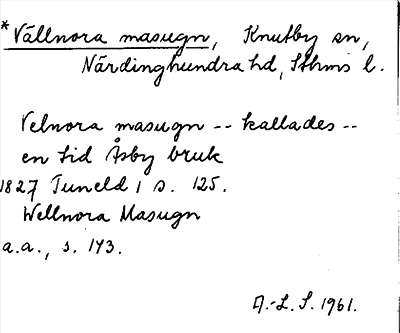 * Vällnora masugn, Knutby sn,
Närdinghundra hd, Sthms l.
Velnora masugn -- kallades --
en tid Åsby bruk
1827 Tuneld 1 s. 125.
Wellnora Masugn
a.a., s. 173.
A.-L. S. 1961.